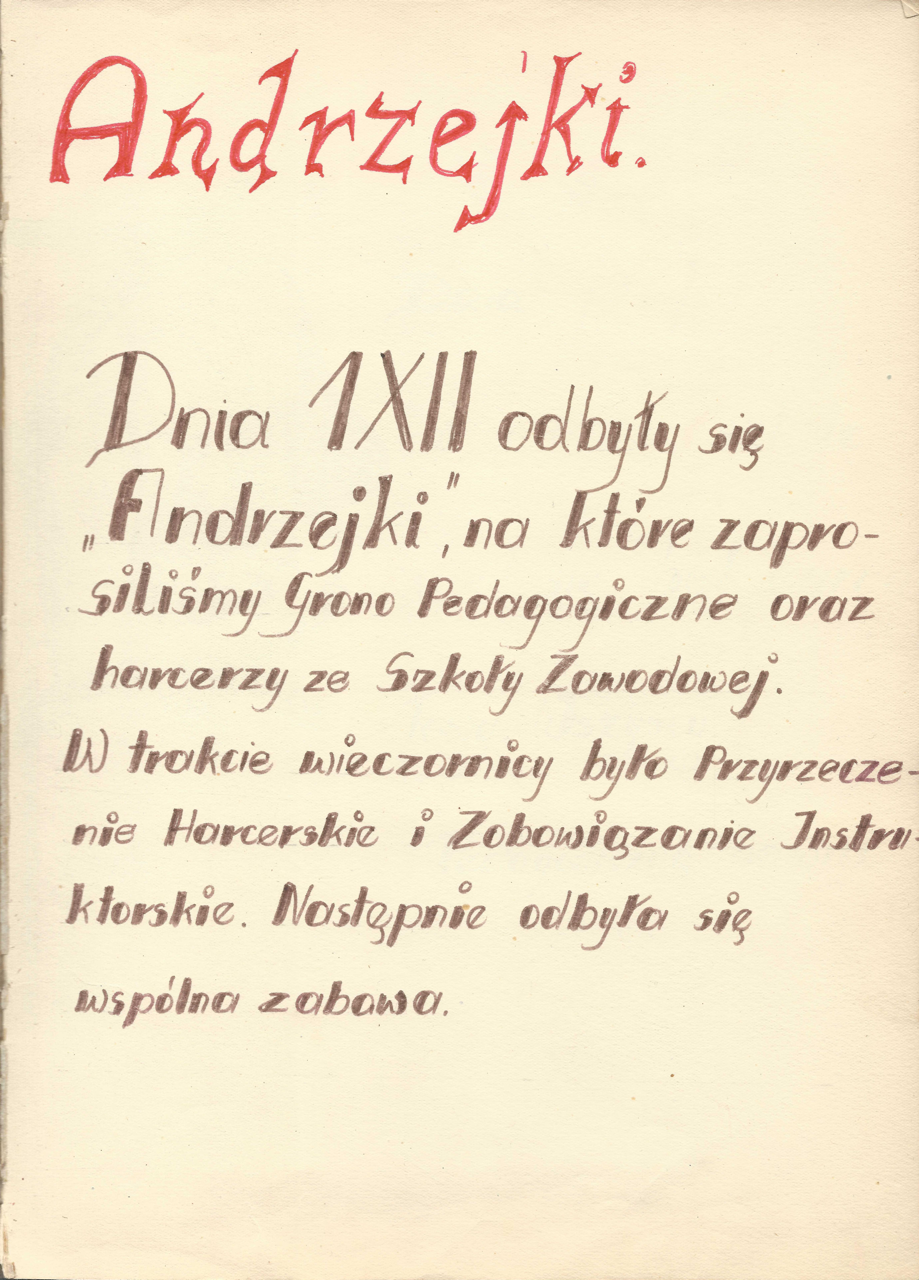 Andrzejki.
Dnia 1XII odbyły się
„Andrzejki", na które zapro-
siliśmy Grono Pedagogiczne oraz
harcerzy ze Szkoły Zawodowej.
W trakcie wieczornicy było Przyrzecze-
nie Harcerskie i Zobowiązanie Instru-
ktorskie. Następnie odbyła się
wspólna zabawa.